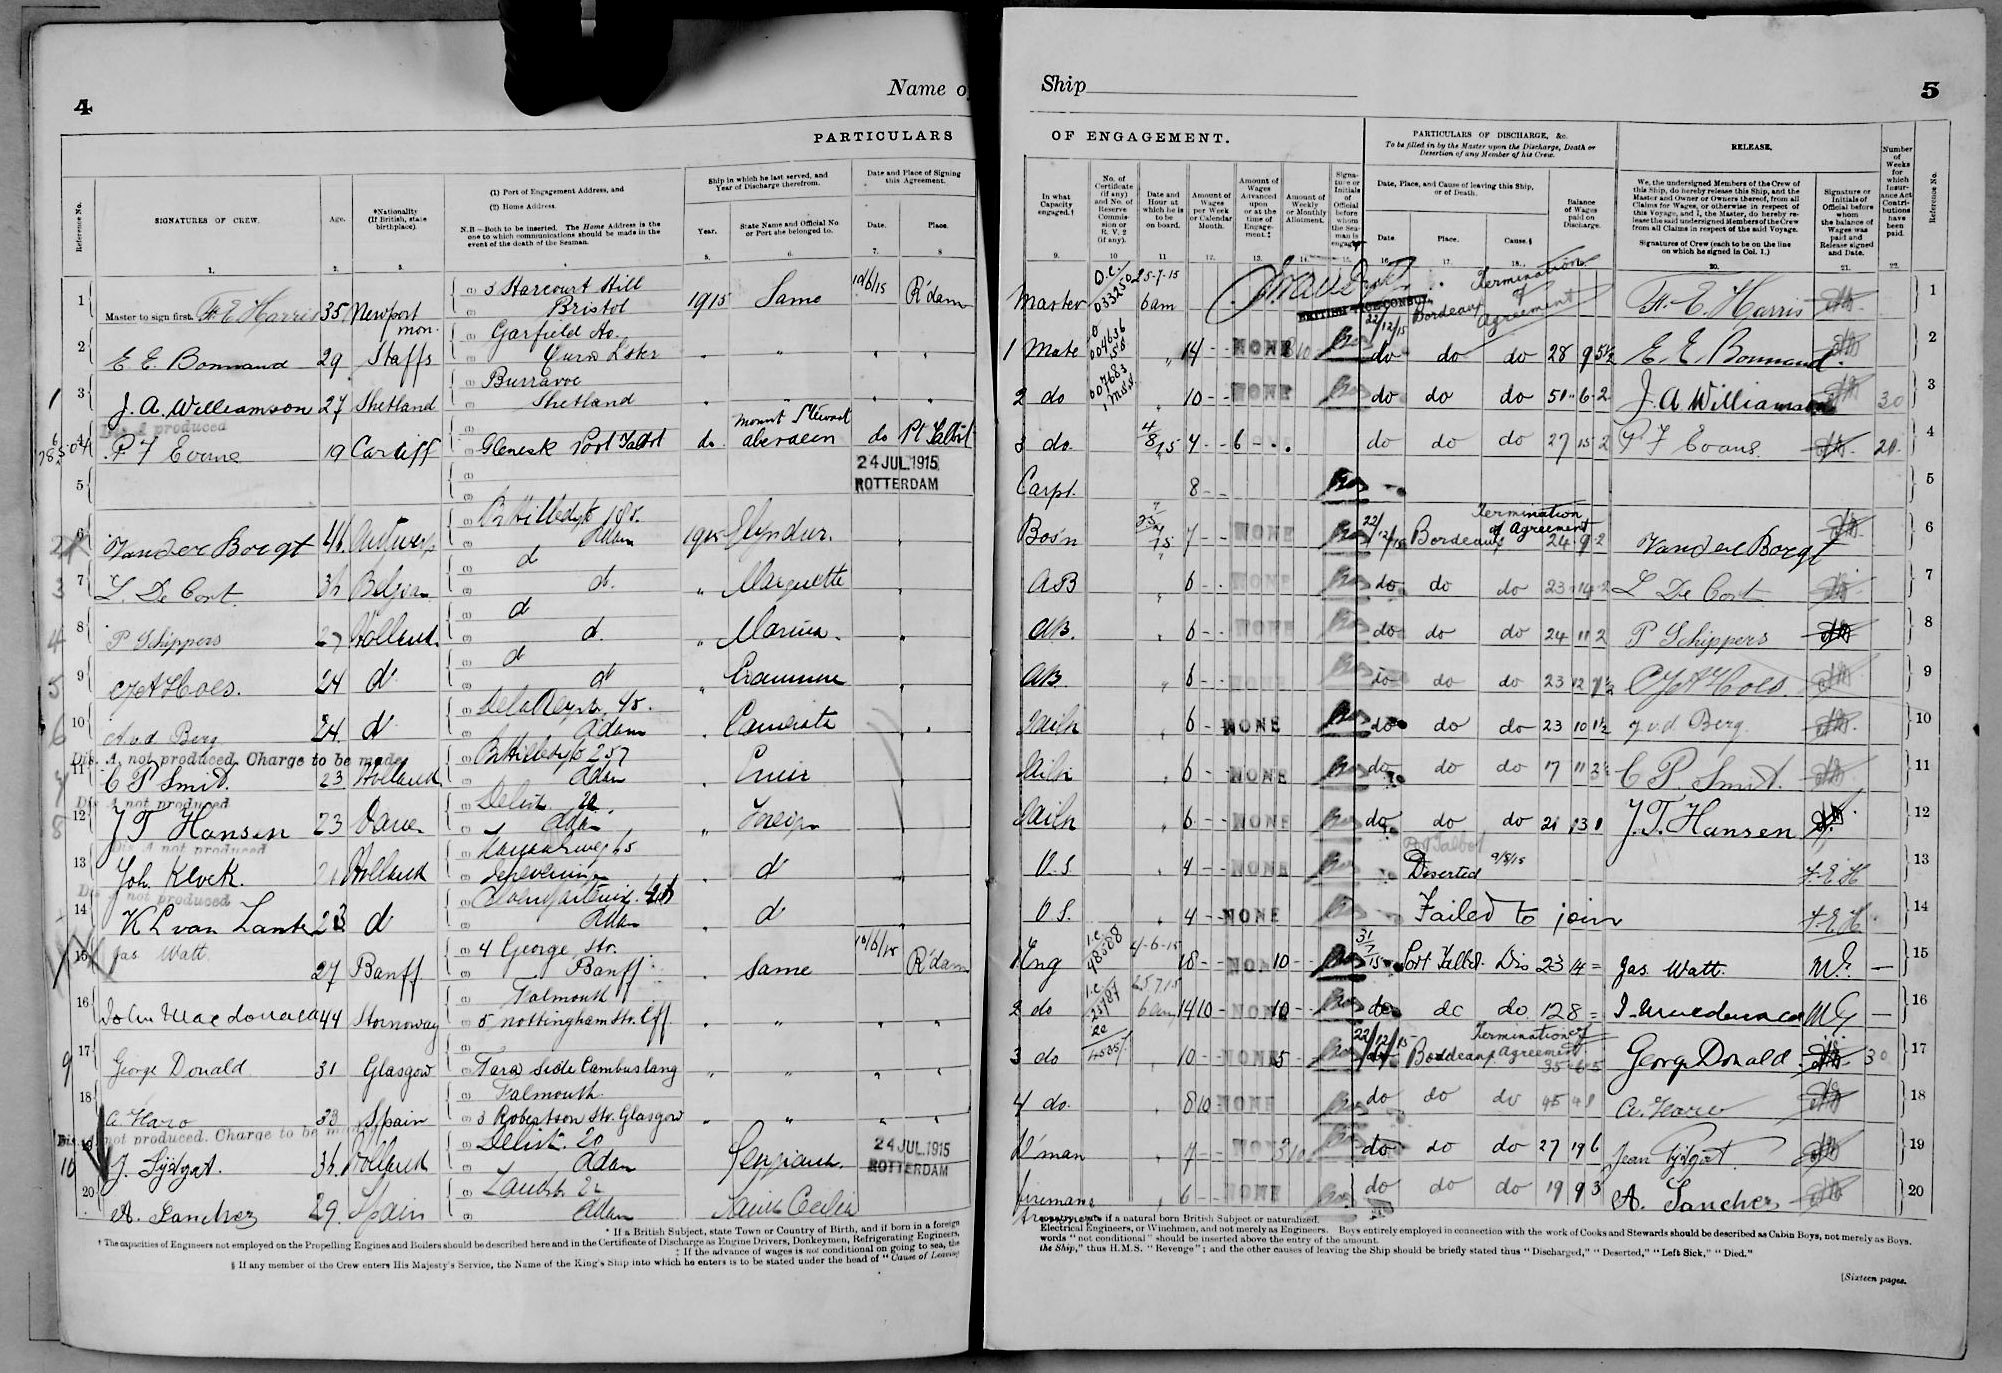 4
Name o
PARTICULARS
Reference No.
SIGNATURES OF CREW.
Age.
*Nationality (If British, state birthplace).
(1) Port of Engagement Address, and
(2) Home Address.
N.B—Both to be inserted. The Home Address is the one to which communications should be made in the event of the death of the Seaman.
Ship in which he last served, and Year of Discharge therefrom.
Year.
State Name and Official No. or Port she belonged to.
Date and Place of Signing this Agreement.
Date.
Place.
1. 2. 3. 5. 6. 7. 8
1 Master to sign first. F. E Harris 35 Newport mon. 3 Harcourt Hill Bristol 1915 Same 10/6/15 R'dam
2 E E. Bonnaud 29 Staffs Garfield Av.
1 3 J. A. Williamson 27 Shetland Burravoe Shetland
Dis A produced
4 P F Evans 19 Cardiff Glenesk Port Talbot do mount Stewart aberdeen do Pt Talbot
5 24 JUL.1915 ROTTERDAM
6 Van der Borgt 46 Antwerp Adam 1915
3 7 L. De Cort. Belgian d d.
4 8 P Schippers 27 Holland d d. Marina
5 9 24 d d d
6 10 v d Berg 24 d 45. Adam
Dis. A. not produced. Charge to be made
7 11 C P Smit. 23 Holland 257 Adam
Dis A not produced
8 12 J T Hansen 23 Dane Delist. 20 Adam
Dis A not produced
13 Joh. Kloek. 21 Holland d
Dis A not produced
14 K L van Lante 23 d Adam d
15 Jas Watt. 27 Banff 4 George Str. Banff same 10/6/15 R'dam
16 John Macdonald 44 Stornoway Falmouth 5 nottingham Str. Cff.
9 17 George Donald 31 Glasgow Tara side Cambuslang
18 A Haro 33 Spain Falmouth 3 Robertson Str. Glasgow
Dis A not produced. Charge to be made
10 19 J. 36 Holland Delist. 20 Adam 24 JUL 1915 ROTTERDAM
20 A. Sanchez 29. Spain Adam
* If a British Subject, state Town or Country of Birth, and if born in a foreign
† The capacities of Engineers not employed on the Propelling Engines and Boilers should be described here and in the Certificate of Discharge as Engine Drivers, Donkeymen, Refrigerating Engineers,
‡ If the advance of wages is not conditional on going to sea, the
§ If any member of the Crew enters His Majesty's Service, the Name of the King's Ship into which he enters is to be stated under the head of "Cause of Leaving
Ship
5
OF ENGAGEMENT.
In what Capacity engaged.†
No. of Certificate (if any) and No. of Reserve Commission or R. V. 2 (if any).
Date and Hour at which he is to be on board.
Amount of Wages per Week or Calendar Month.
Amount of Wages Advanced upon or at the time of Engagement.‡
Amount of Weekly or Monthly Allotment.
Signature or Initials of Official before whom the Seaman is engaged
PARTICULARS OF DISCHARGE, &c.
To be filled in by the Master upon the Discharge, Death or Desertion of any Member of his Crew.
Date, Place, and Cause of leaving this Ship, or of Death.
Date.
Place.
Cause.§
Balance of Wages paid on Discharge.
RELEASE.
We, the undersigned Members of the Crew of this Ship, do hereby release this Ship, and the Master and Owner or Owners thereof, from all Claims for Wages, or otherwise in respect of this Voyage, and I, the Master, do hereby release the said undersigned Members of the Crew from all Claims in respect of the said Voyage.
Signatures of Crew (each to be on the line on which he signed in Col. 1.)
Signature or Initials of Official before whom the balance of Wages was paid and Release signed and Date.
Number of Weeks for which Insurance Act Contributions have been paid.
Reference No.
9. 10 11 12. 13. 14. 15. 16. 17. 18. 20. 21. 22.
Master O.C. 033250 25-7-15 6am BRITISH VICE CONSUL 22/12/15 Bordeaux Termination of Agreement F. E. Harris 1
1 Mate 14 NONE do do do 28 9 5½ E. E. Bonnaud 2
2 do 007683 10 NONE do do do 50 6 2 J. A Williamson 30 3
3 do. 4/8/15 4 6 do do do 27 15 2 P F Evans 20 4
Carpt. 8 5
Bosn 7 NONE 22/12/15 Bordeaux Termination of Agreement 24 9 2 Van der Borgt 6
AB 6 NONE do do do 23 14 2 L De Cort 7
AB. 6 NONE do do do 24 11 2 P Schippers 8
AB 6 NONE do do do 23 12 9
Sailr 6 NONE do do do 23 10 1½ v d Berg 10
Sailr 6 NONE do do do 17 11 3½ C P. Smit. 11
Sailr 6 NONE do do do 21 13 1 J. T. Hansen 12
O.S 4 NONE Pt Talbot Deserted 9/8/15 F. E H 13
O S. 4 NONE Failed to join F. E. H. 14
1 Eng 48508 4-6-15 18 NONE 10 31/7/15 Port Talbot Dis 23 14 = Jas Watt. — 15
2 do 25.7.15 6 am 14 10 NONE 10 do do do 128 = — 16
3 do 10 NONE 5 22/12/15 Bordeaux Termination of Agreement 35 6 5 George Donald 30 17
4 do. 8 10 NONE do do do A. Haro 18
D'man 7 NONE do do do 27 19 6 Jean 19
firemans 6 NONE do do do 19 9 3 A. Sanchez 20
country, state if a natural born British Subject or naturalized.
Electrical Engineers, or Winchmen, and not merely as Engineers. Boys entirely employed in connection with the work of Cooks and Stewards should be described as Cabin Boys, not merely as Boys.
words "not conditional" should be inserted above the entry of the amount.
the Ship," thus H.M.S. "Revenge"; and the other causes of leaving the Ship should be briefly stated thus "Discharged," "Deserted," "Left Sick," "Died."
[Sixteen pages.